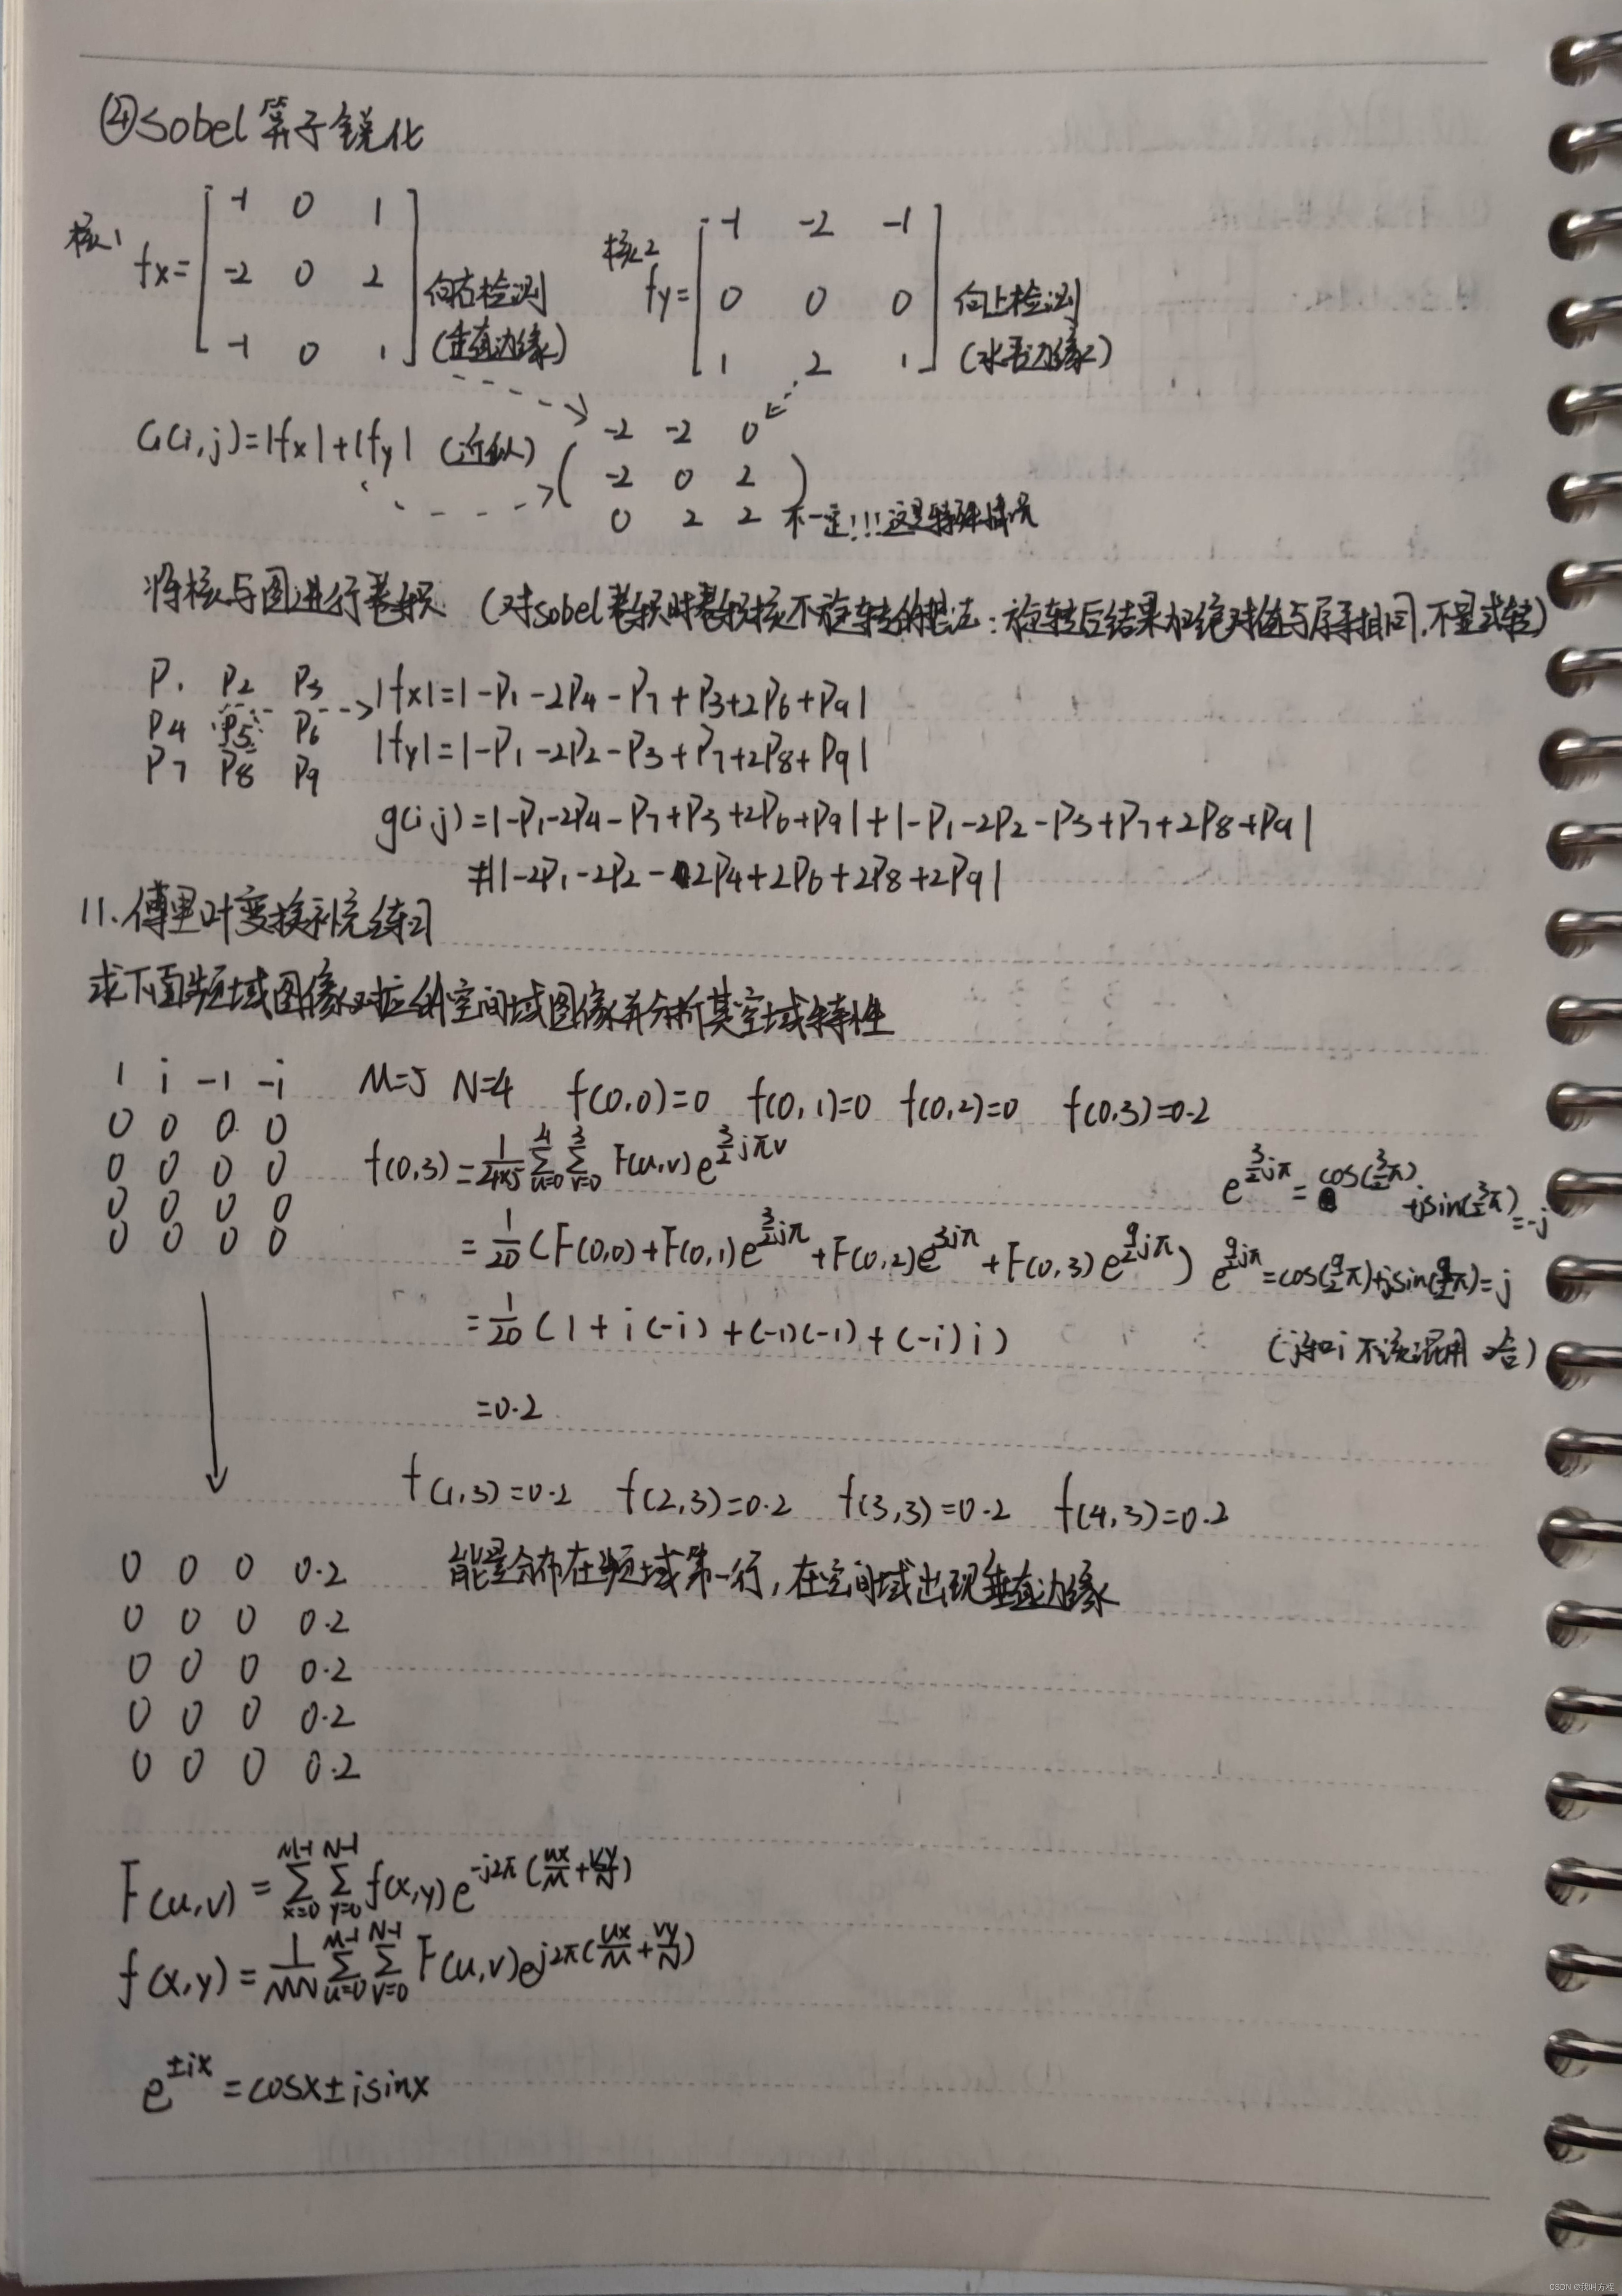 ④sobel算子锐化
核1 fx= [ -1 0 1
-2 0 2
-1 0 1 ] 向右检测
(垂直边缘)
核2 fy= [ -1 -2 -1
0 0 0
1 2 1 ] 向上检测
(水平边缘)
G(i,j)=|fx|+|fy| (近似)
( -2 -2 0
-2 0 2
0 2 2 ) 不一定!!!这是特殊情况
将核与图进行卷积 (对sobel卷积时卷积核不旋转的想法:旋转后结果加绝对值与原来相同,不显式转)
P1 P2 P3
P4 P5 P6
P7 P8 P9
|fx|=|-P1-2P4-P7+P3+2P6+P9|
|fy|=|-P1-2P2-P3+P7+2P8+P9|
g(i,j)=|-P1-2P4-P7+P3+2P6+P9|+|-P1-2P2-P3+P7+2P8+P9|
≠|-2P1-2P2-2P4+2P6+2P8+2P9|
11.傅里叶变换补充练习
求下面频域图像对应的空间域图像并分析其空域特性
1 i -1 -i
0 0 0 0
0 0 0 0
0 0 0 0
0 0 0 0
M=5 N=4 f(0,0)=0 f(0,1)=0 f(0,2)=0 f(0,3)=0.2
f(0,3)=1/(4×5) Σ_{u=0}^{4} Σ_{v=0}^{3} F(u,v)e^{3/2jπv}
e^{3/2jπ}=cos(3/2π)+jsin(3/2π)=-j
=1/20(F(0,0)+F(0,1)e^{3/2jπ}+F(0,2)e^{3jπ}+F(0,3)e^{9/2jπ})
e^{9/2jπ}=cos(9/2π)+jsin(9/2π)=j
=1/20(1+i(-i)+(-1)(-1)+(-i)i)
(j和i不该混用 哈)
=0.2
f(1,3)=0.2 f(2,3)=0.2 f(3,3)=0.2 f(4,3)=0.2
0 0 0 0.2
0 0 0 0.2
0 0 0 0.2
0 0 0 0.2
0 0 0 0.2
能量分布在频域第一行,在空间域出现垂直边缘
F(u,v)=Σ_{x=0}^{M-1} Σ_{y=0}^{N-1} f(x,y)e^{-j2π(ux/M+vy/N)}
f(x,y)=1/MN Σ_{u=0}^{M-1} Σ_{v=0}^{N-1} F(u,v)e^{j2π(ux/M+vy/N)}
e^{±ix}=cosx±isinx
CSDN @我叫方程